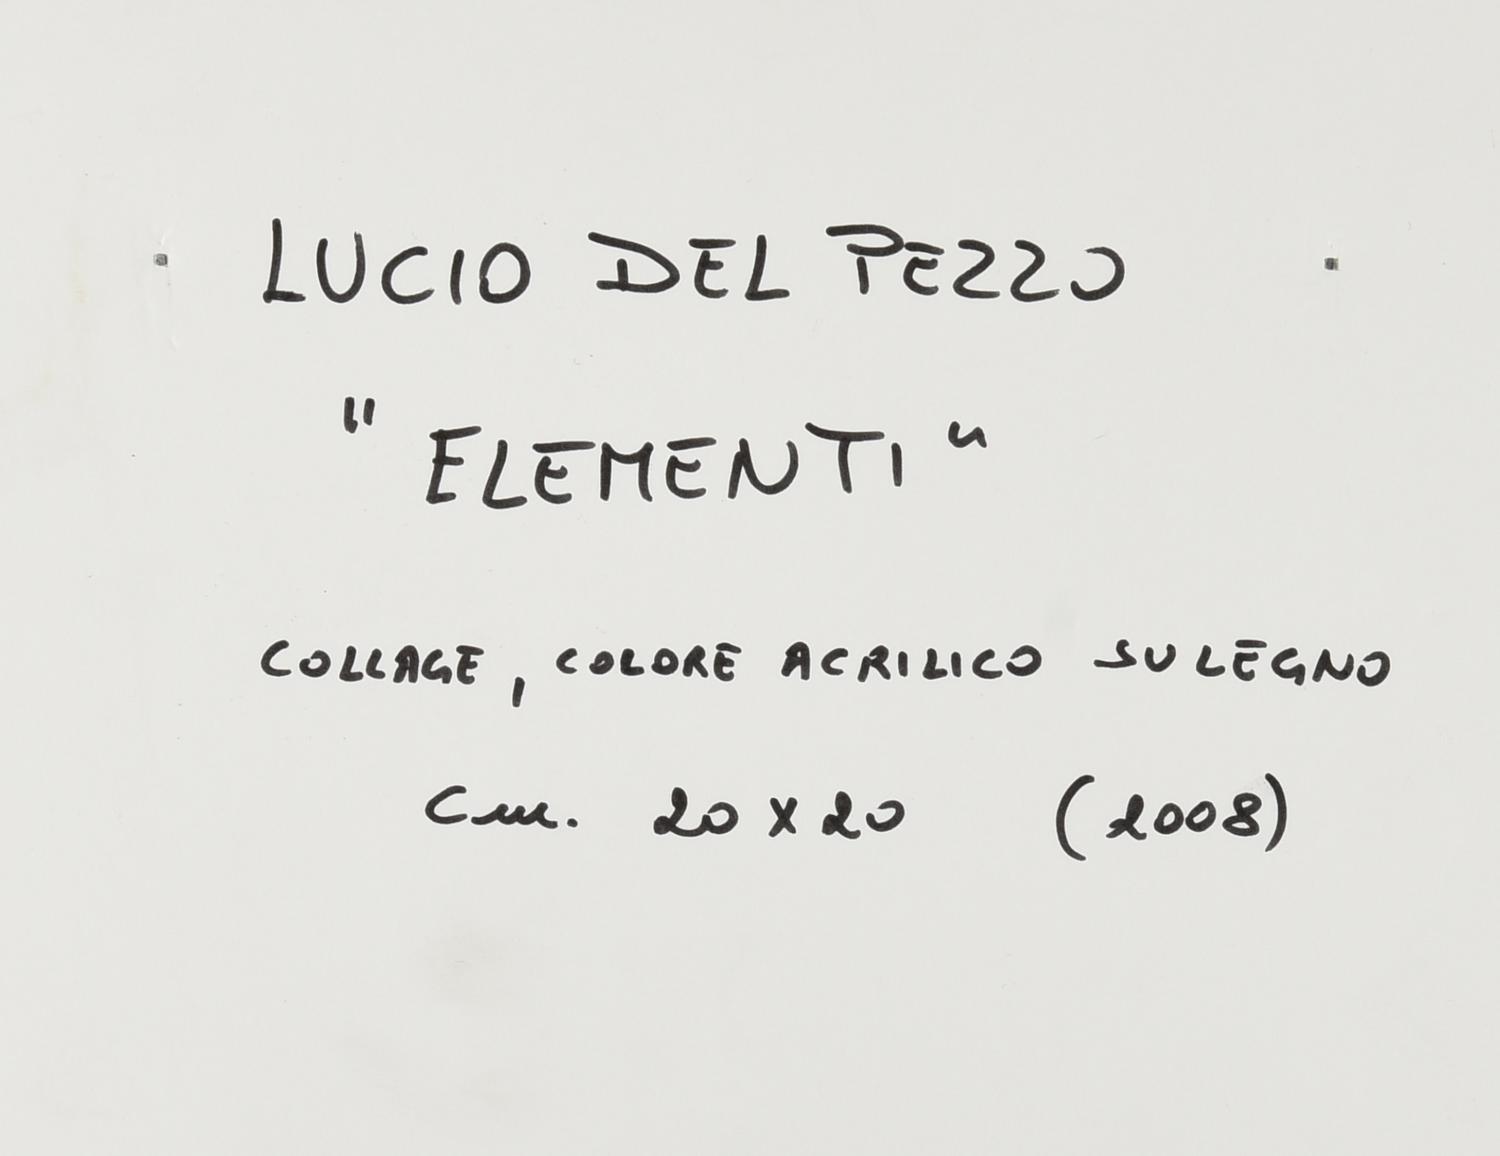 LUCIO DEL PEZZO
"ELEMENTI"
COLLAGE, COLORE ACRILICO SU LEGNO
Cm. 20 x 20 (2008)